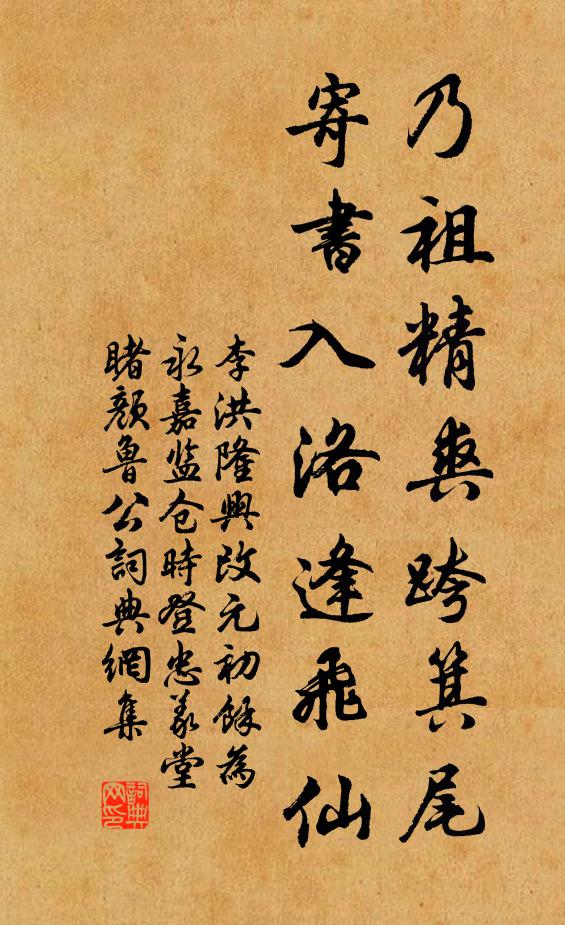 乃祖精爽跨箕尾
寄書入洛逢飛仙
李洪隆興改元初餘為
永嘉监仓時登忠義堂
睹顔魯公詞典網集
詞典网印